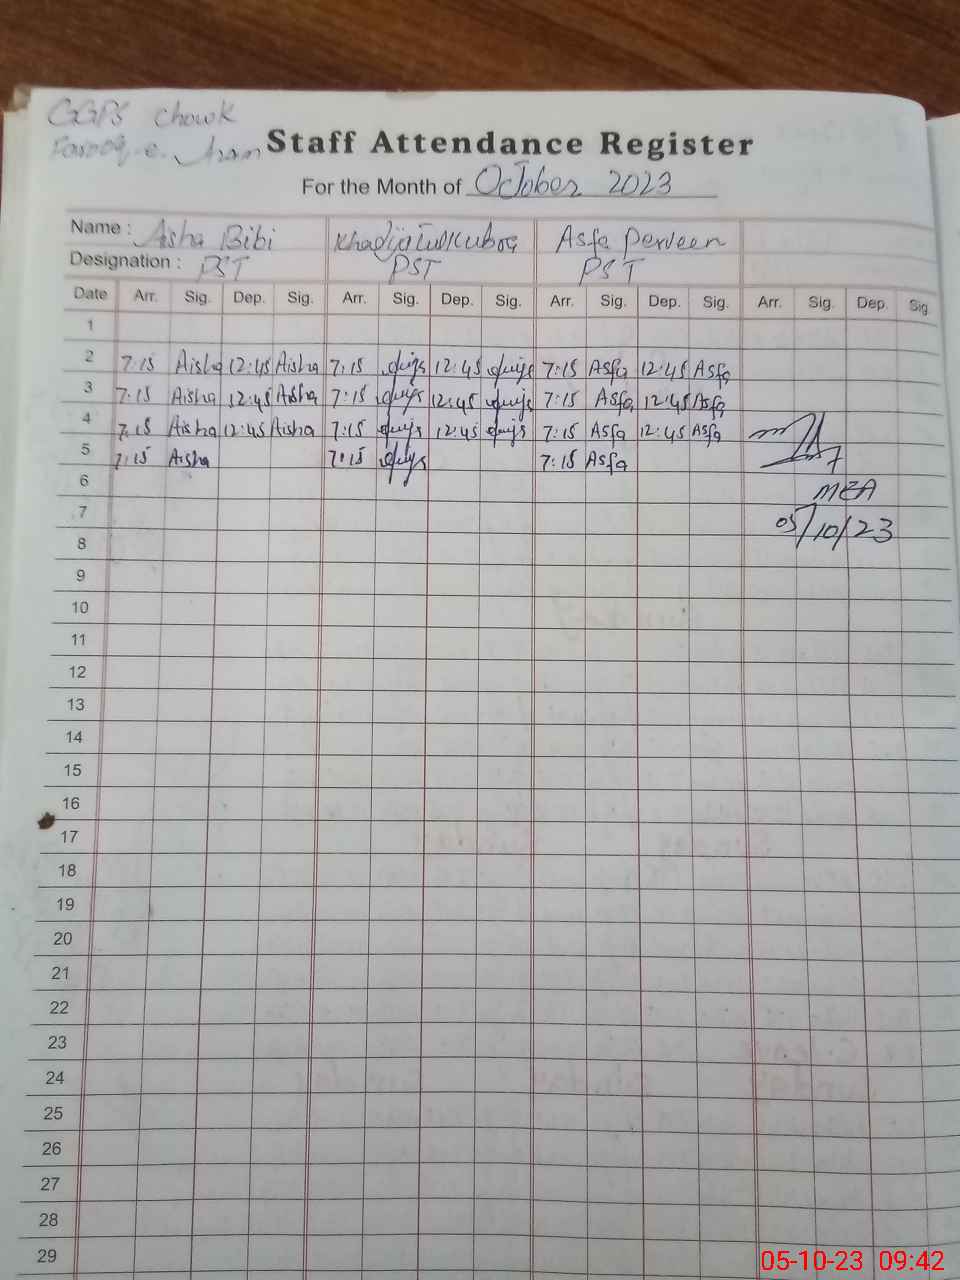 GGPS Chowk
Farooq-e-Azam
Staff Attendance Register
For the Month of October 2023
Name : Aisha Bibi Khadija Tul Kubra Asfa Perveen
Designation : PST PST PST
Date Arr. Sig. Dep. Sig. Arr. Sig. Dep. Sig. Arr. Sig. Dep. Sig. Arr. Sig. Dep. Sig.
1
2 7:15 Aisha 12:45 Aisha 7:15 12:45 7:15 Asfa 12:45 Asfa
3 7:15 Aisha 12:45 Aisha 7:15 12:45 7:15 Asfa 12:45 Asfa
4 7:15 Aisha 12:45 Aisha 7:15 12:45 7:15 Asfa 12:45 Asfa
5 7:15 Aisha 7:15 7:15 Asfa
6 MEA
7 05/10/23
8
9
10
11
12
13
14
15
16
17
18
19
20
21
22
23
24
25
26
27
28
29
05-10-23 09:42